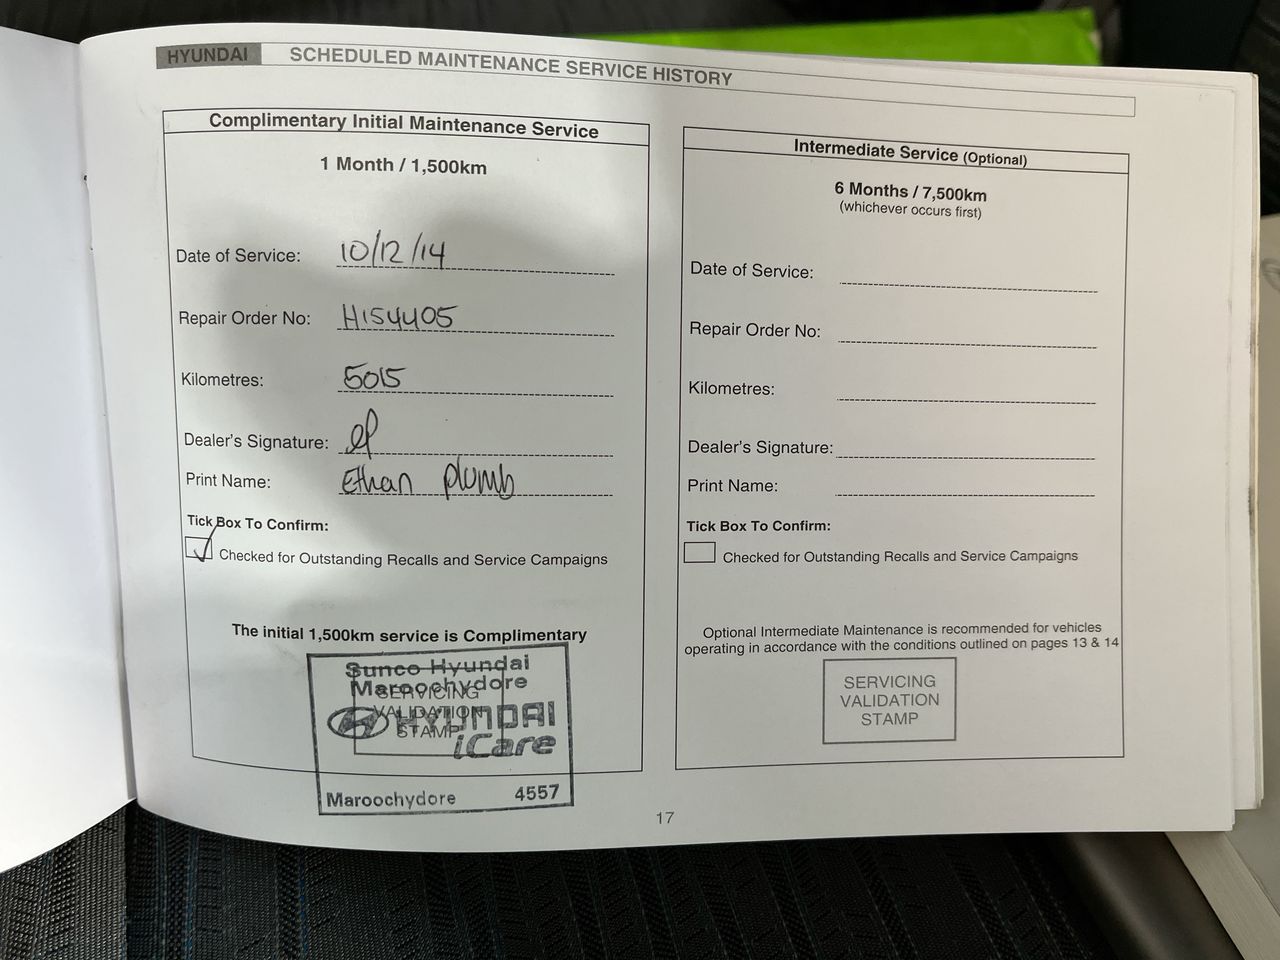 HYUNDAI SCHEDULED MAINTENANCE SERVICE HISTORY
Complimentary Initial Maintenance Service
1 Month / 1,500km
Date of Service: 10/12/14
Repair Order No: H154405
Kilometres: 5015
Dealer's Signature: ep
Print Name: Ethan plumb
Tick Box To Confirm:
Checked for Outstanding Recalls and Service Campaigns
The initial 1,500km service is Complimentary
Sunco Hyundai
Maroochydore
SERVICING
VALIDATION
STAMP
HYUNDAI
iCare
Maroochydore 4557
Intermediate Service (Optional)
6 Months / 7,500km
(whichever occurs first)
Date of Service:
Repair Order No:
Kilometres:
Dealer's Signature:
Print Name:
Tick Box To Confirm:
Checked for Outstanding Recalls and Service Campaigns
Optional Intermediate Maintenance is recommended for vehicles
operating in accordance with the conditions outlined on pages 13 & 14
SERVICING
VALIDATION
STAMP
17